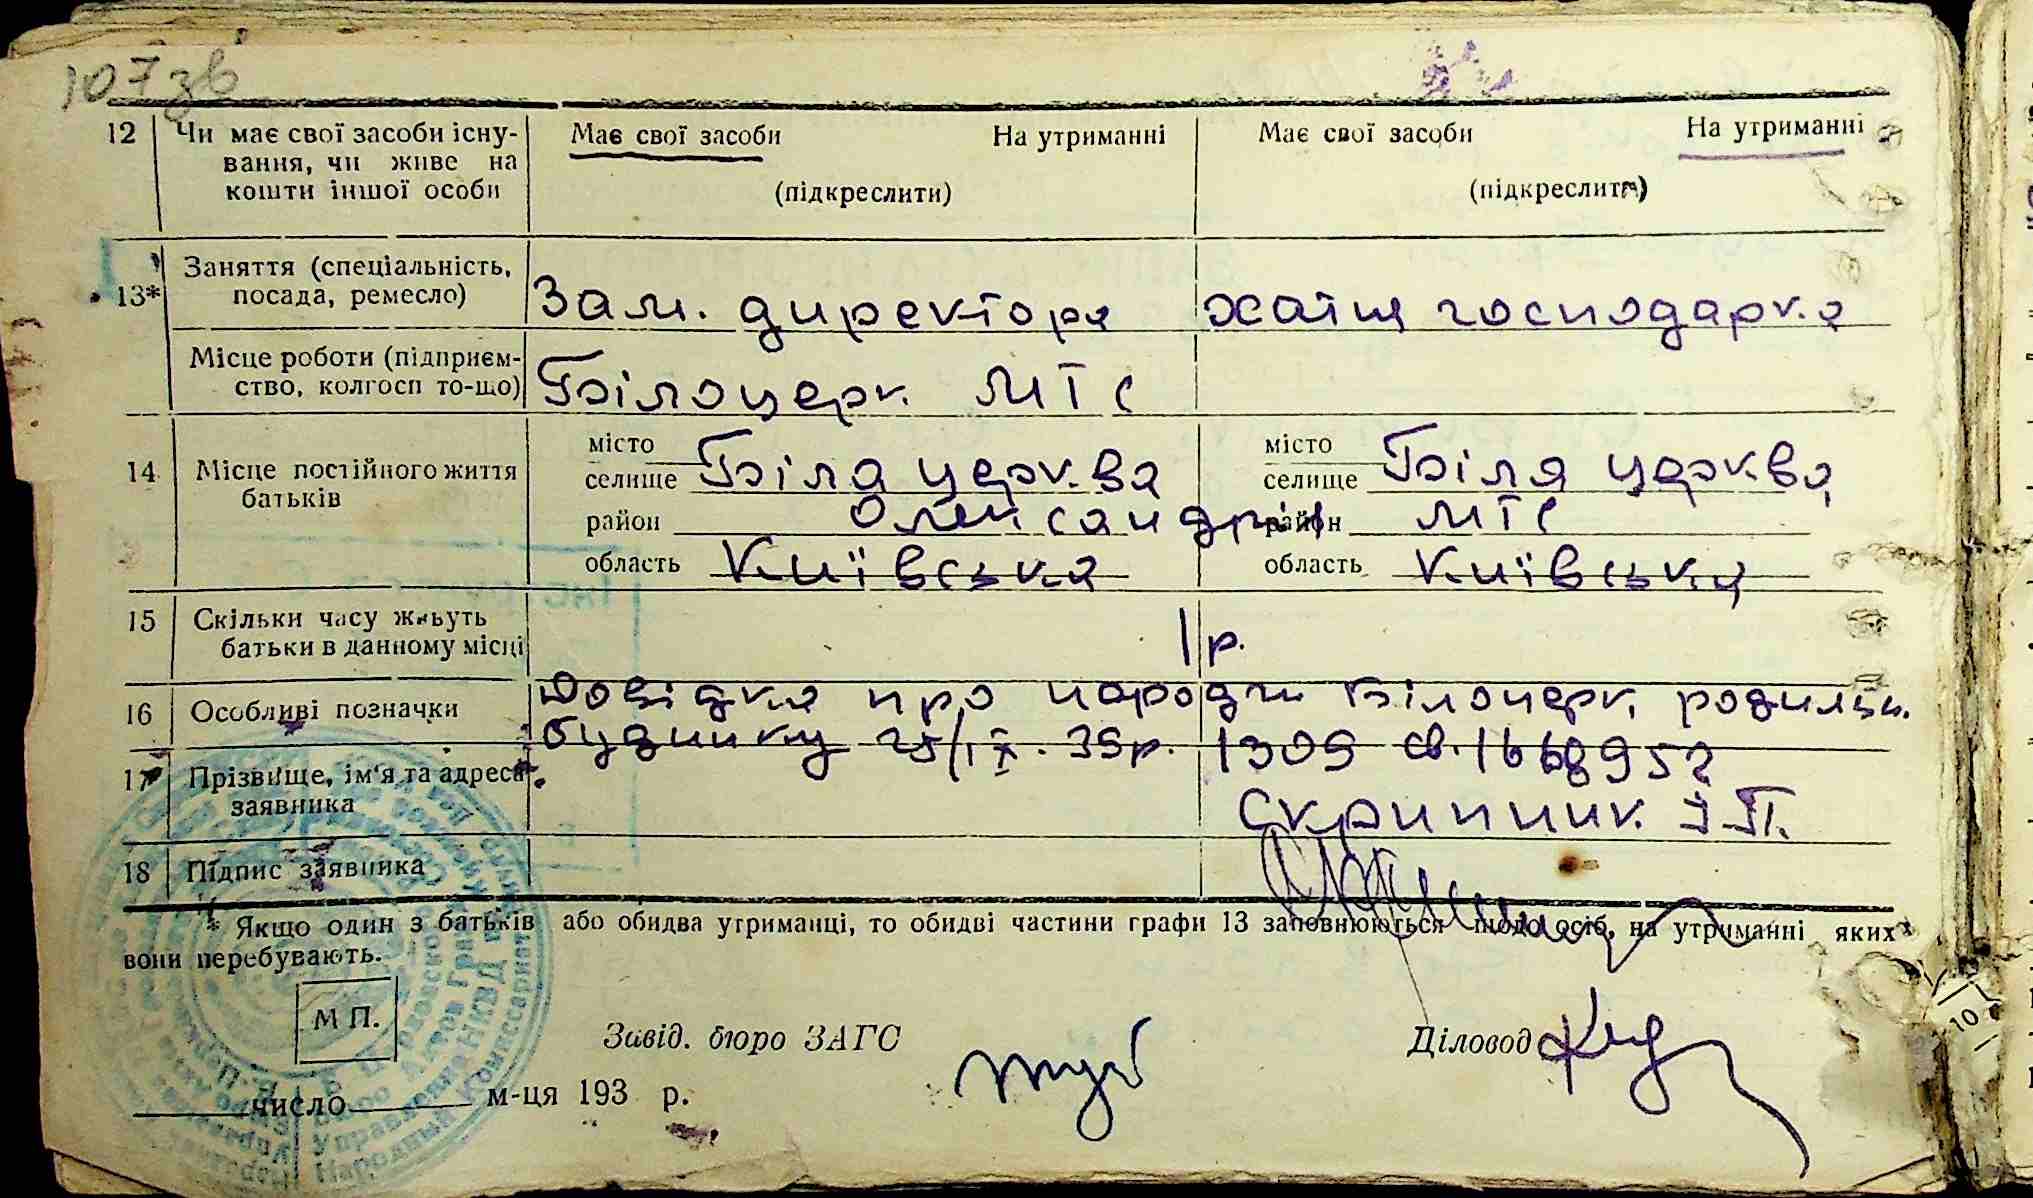 107 зв
12 Чи має свої засоби існу-
вання, чи живе на
кошти іншої особи
Має свої засоби На утриманні
(підкреслити)
Має свої засоби На утриманні
(підкреслити)
13* Заняття (спеціальність,
посада, ремесло)
Зам. директора
хатня господарка
Місце роботи (підприєм-
ство, колгосп то-що)
Білоцерк. МТС
14 Місце постійного життя
батьків
місто
селище Біла церква
район Олександрія
область Київська
місто
селище Біля церква
район МТС
область Київська
15 Скільки часу живуть
батьки в данному місці
1 р.
16 Особливі позначки
Довідка про народж Білоцерк. родильн.
будинку 25/IX. 39р. 1309 св. 1668952
17 Прізвище, ім'я та адреса
заявника
Скрипник І.П.
18 Підпис заявника
* Якщо один з батьків або обидва утриманці, то обидві частини графи 13 заповнюються щодо осіб, на утриманні яких
вони перебувають.
М П.
Завід. бюро ЗАГС
Діловод
число м-ця 193 р.
10